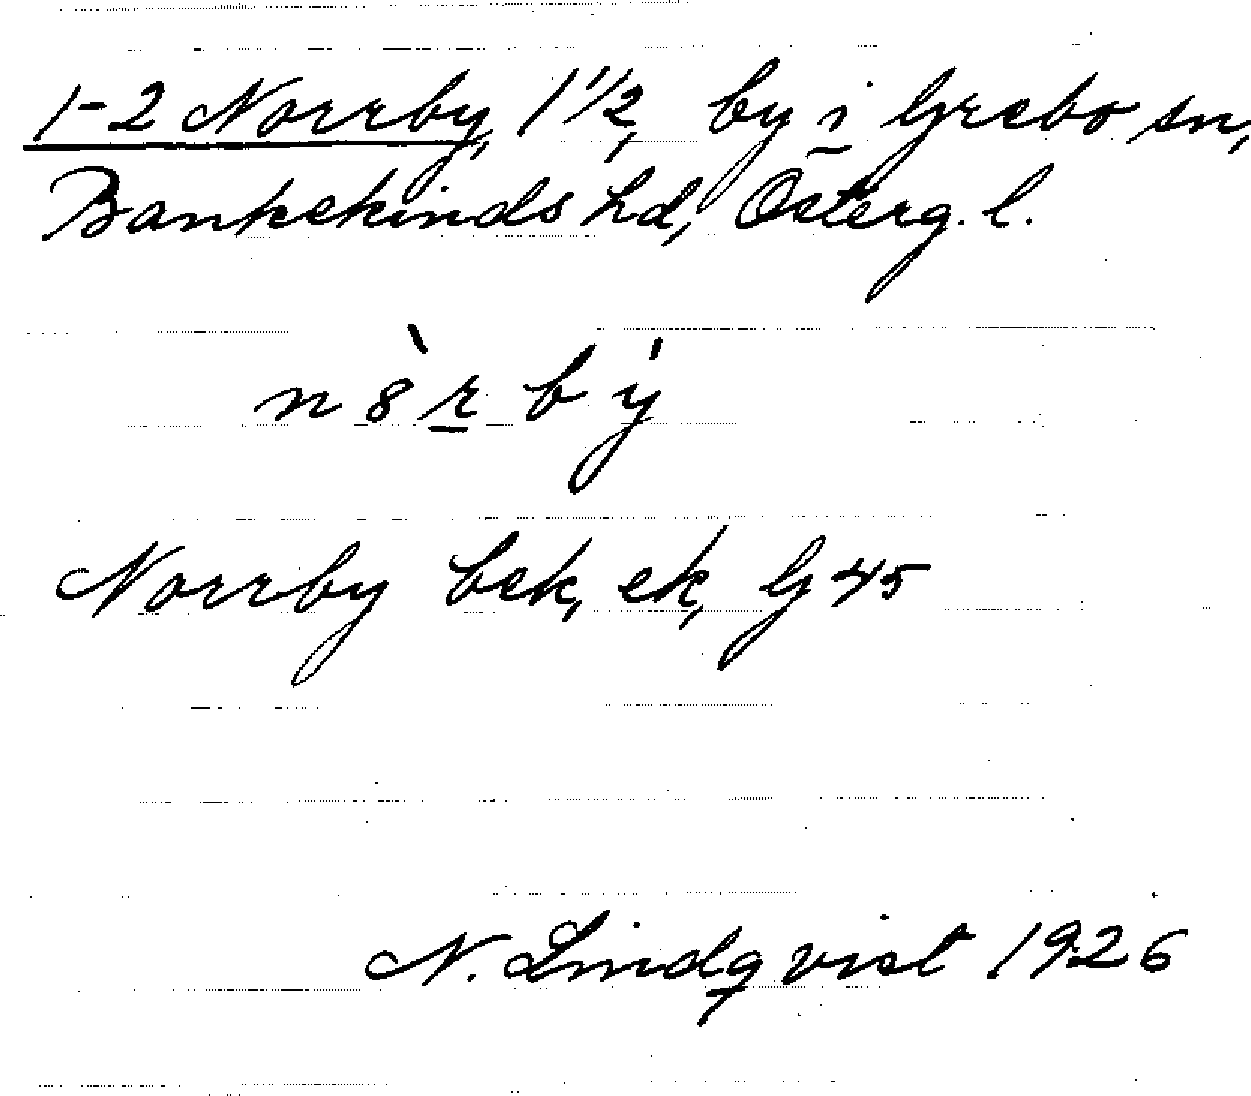 1-2 Norrby, 1 1/2, by i Grebo sn,
Bankekinds hd, Österg. l.
n8̀rbý
Norrby bek, ek, G 45
N. Lindqvist 1926